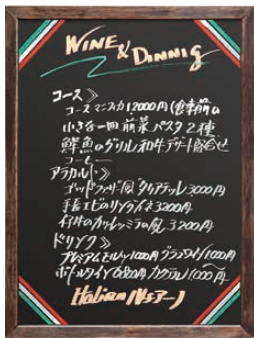 WINE & DINNIG
コース》
コース マニフィカ 12000円（食事前の
小さな一皿 前菜 パスタ2種
鮮魚のグリル 和牛 デザート盛合せ
コーヒー
アラカルト》
ゴッドファーザー風 タリアテッレ 3000円
手長エビのリングイネ 3200円
仔牛のカツレツ ミラノ風 3200円
ドリンク》
プレミアムモルツ 1000円 グラスワイン 1000円
ボトルワイン 6800円 カクテル 1000円
Italian バルアーノ